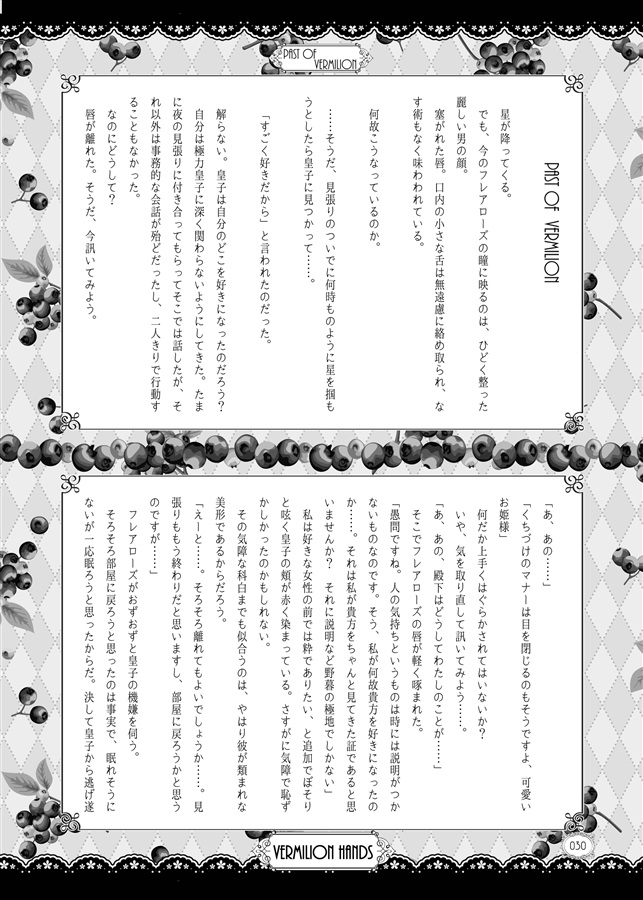 PAST OF
VERMILION
PAST OF VERMILION
星が降ってくる。
でも、今のフレアローズの瞳に映るのは、ひどく整った
麗しい男の顔。
塞がれた唇。口内の小さな舌は無遠慮に絡め取られ、な
す術もなく味わわれている。
何故こうなっているのか。
……そうだ、見張りのついでに何時ものように星を掴も
うとしたら皇子に見つかって……。
「すごく好きだから」と言われたのだった。
解らない。皇子は自分のどこを好きになったのだろう?
自分は極力皇子に深く関わらないようにしてきた。たま
に夜の見張りに付き合ってもらってそこでは話したが、そ
れ以外は事務的な会話が殆どだったし、二人きりで行動す
ることもなかった。
なのにどうして?
唇が離れた。そうだ、今訊いてみよう。
「あ、あの……」
「くちづけのマナーは目を閉じるのもそうですよ、可愛い
お姫様」
何だか上手くはぐらかされてはいないか?
いや、気を取り直して訊いてみよう……。
「あ、あの、殿下はどうしてわたしのことが……」
そこでフレアローズの唇が軽く啄まれた。
「愚問ですね。人の気持ちというものは時には説明がつか
ないものなのです。そう、私が何故貴方を好きになったの
か……。それは私が貴方をちゃんと見てきた証であると思
いませんか? それに説明など野暮の極地でしかない」
私は好きな女性の前では粋でありたい、と追加でぼそり
と呟く皇子の頬が赤く染まっている。さすがに気障で恥ず
かしかったのかもしれない。
その気障な科白までも似合うのは、やはり彼が類まれな
美形であるからだろう。
「えーと……。そろそろ離れてもよいでしょうか……。見
張りももう終わりだと思いますし、部屋に戻ろうかと思う
のですが……」
フレアローズがおずおずと皇子の機嫌を伺う。
そろそろ部屋に戻ろうと思ったのは事実で、眠れそうに
ないが一応眠ろうと思ったからだ。決して皇子から逃げ遂
030
VERMILION HANDS